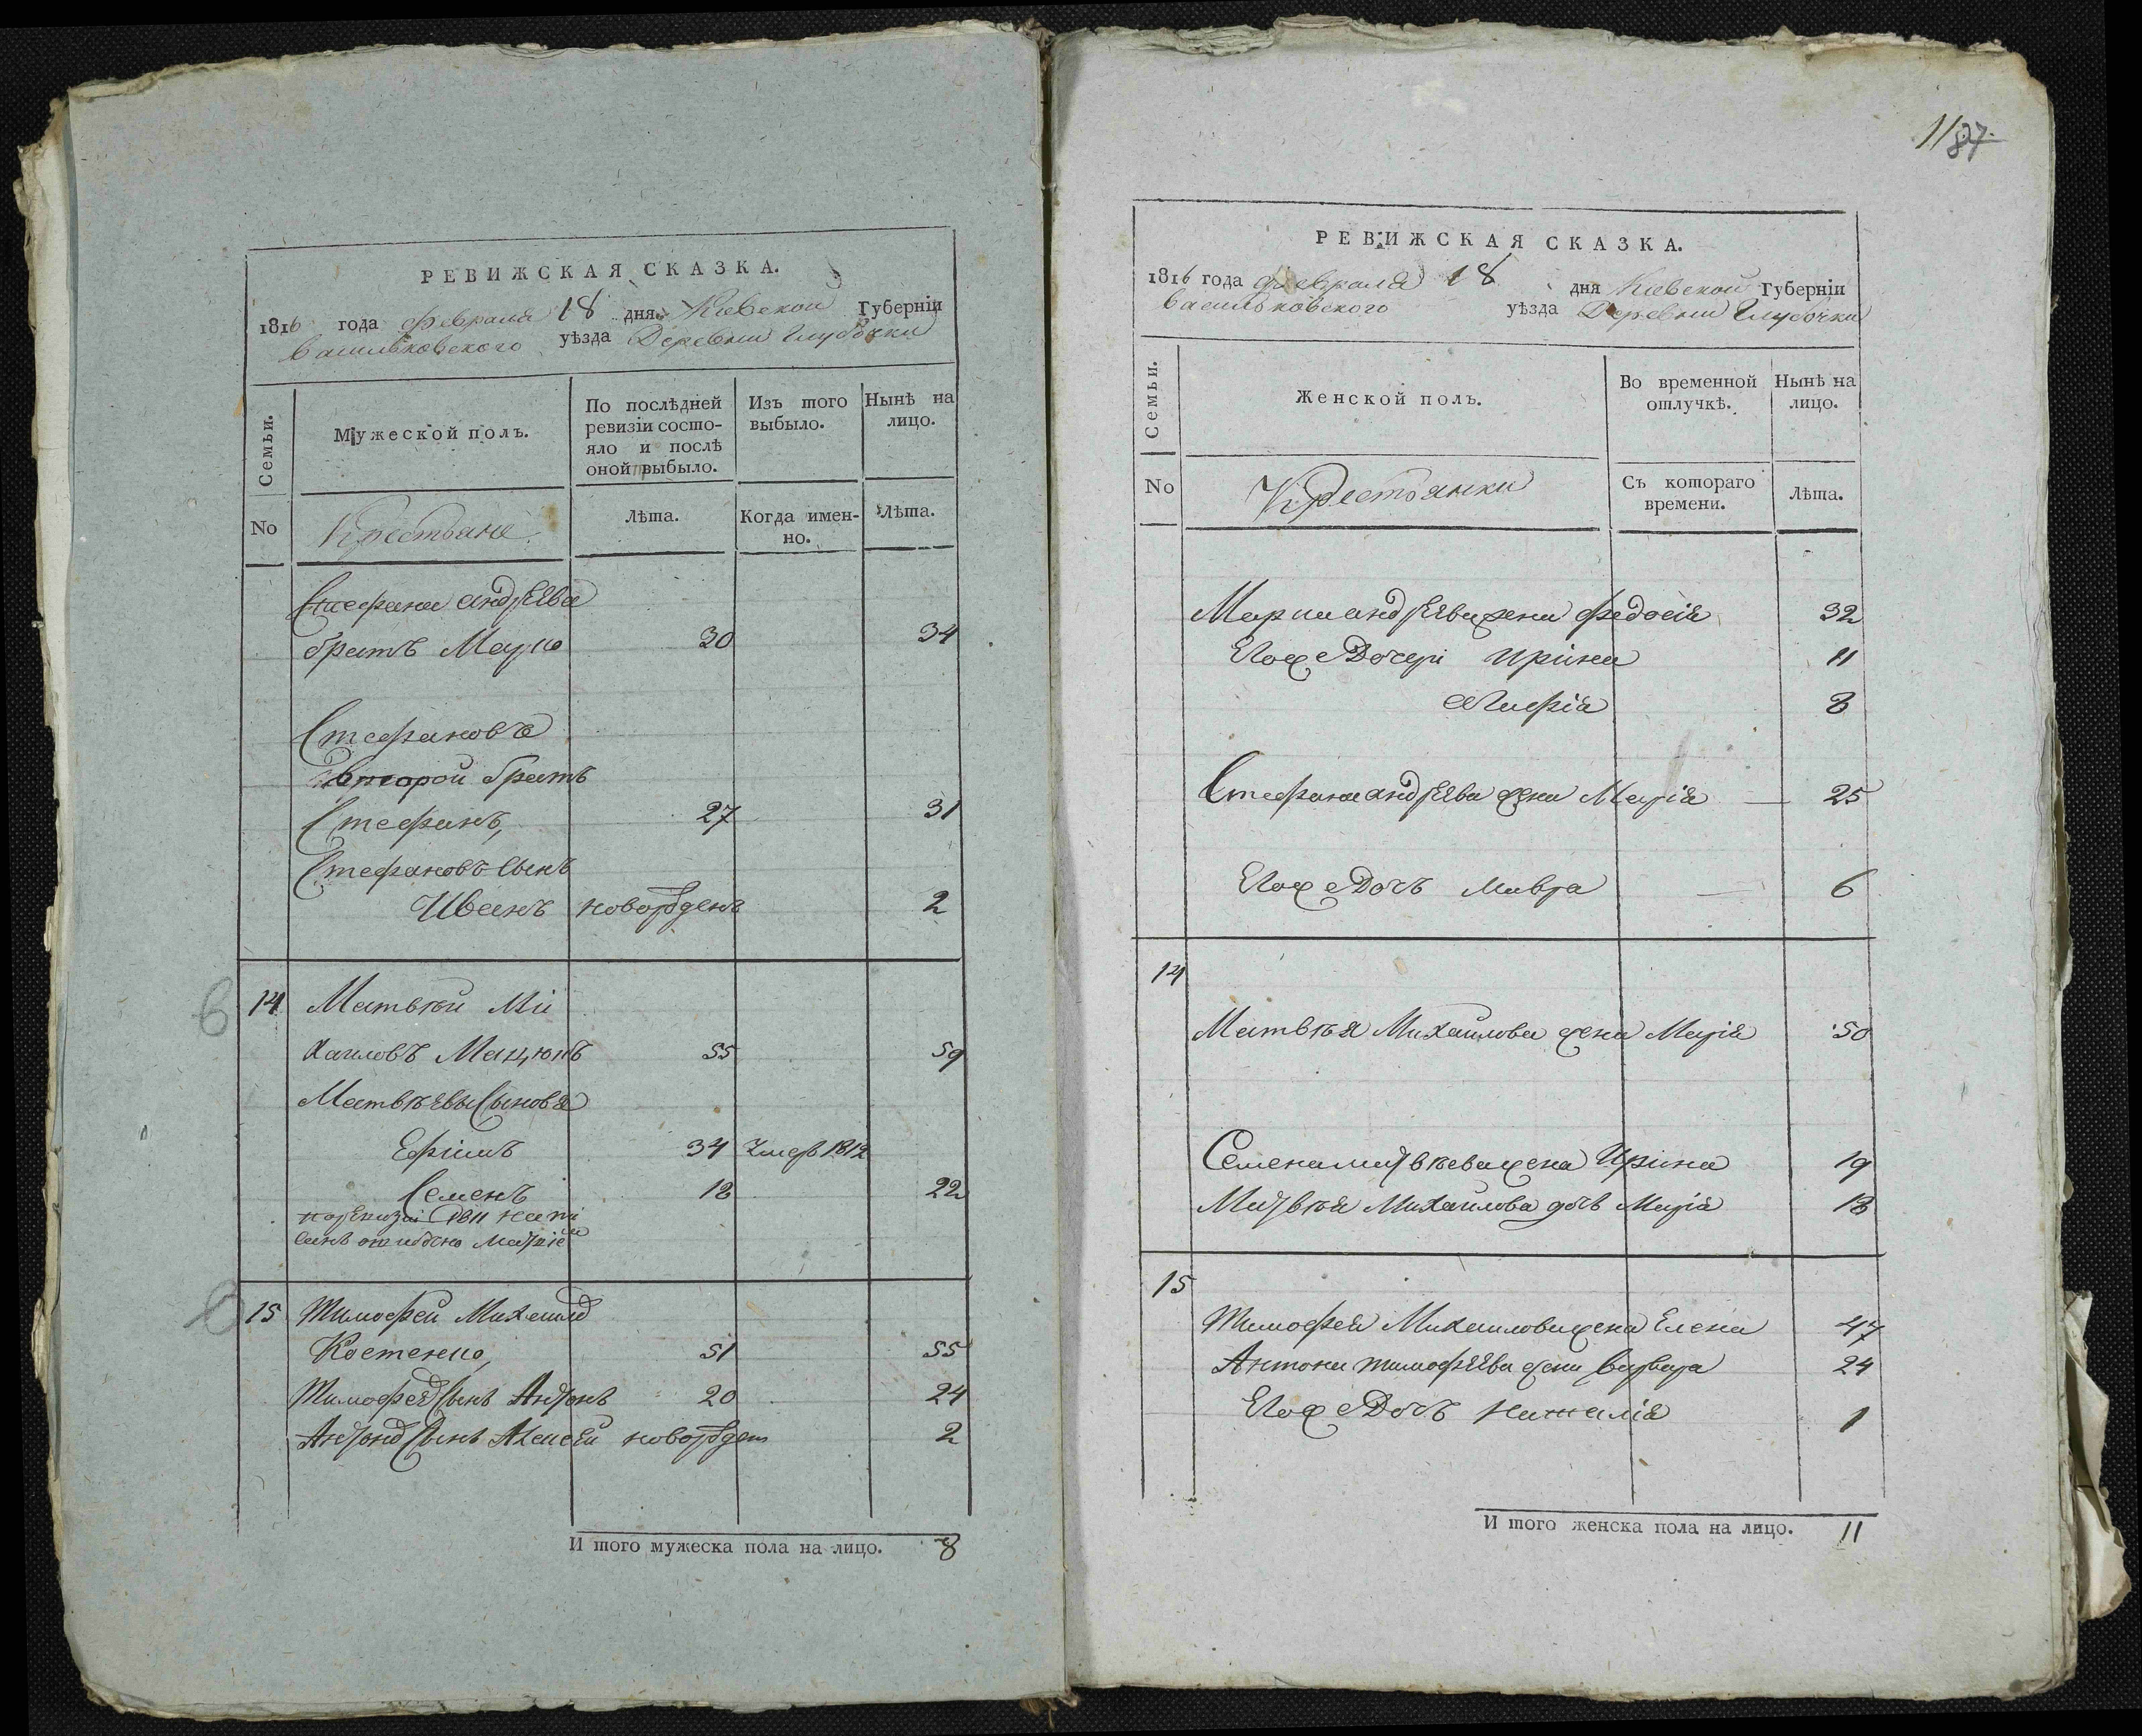 РЕВИЖСКАЯ СКАЗКА.
1816 года февраля 18 дня Киевской Губерніи
васильковского уѣзда Деревни Глубочки
Семьи.
Мужеской полъ.
По послѣдней ревизіи состояло и послѣ оной выбыло.
Изъ того выбыло.
Нынѣ на лицо.
No
Крестьяне
Лѣта.
Когда именно.
Лѣта.
Стефана андрѣева
братъ Марко 30 34
Стефановъ
второй братъ
Стефанъ, 27 31
Стефановъ сынъ
Иванъ новорожденъ 2
14 Матвѣй Ми
хаиловъ Мацюкъ 55 59
Матвѣевы Сыновя
Ефимъ 34 Умер 1812
Семенъ 18 22
по ревизіи 1811 напи
санъ ошибочно
15 Тимофей Михаилов
Костенко, 51 55
Тимофея Сынъ Антонъ 20 24
Антонов Сынъ Алексѣй новорожден 2
И того мужеска пола на лицо. 8
1187
РЕВИЖСКАЯ СКАЗКА.
1816 года февраля 18 дня Киевской Губерніи
васильковского уѣзда Деревни Глубочки
Семьи.
Женской полъ.
Во временной отлучкѣ.
Нынѣ на лицо.
No
Крестьянки
Съ котораго времени.
Лѣта.
Марка андрѣева жена федосія 32
Его же Дочери Ирина 11
8
Стефана андрѣева жена Марія 25
Его же Дочъ Мавра 6
14
Матвѣя Михаилова жена Марія 50
Семена матвѣева жена Ирина 19
Матвѣя Михаилова дочъ Марія 18
15
Тимофея Михаилова жена Елена 47
Антона тимофѣева жена варвара 24
Его же Дочъ Наталія 1
И того женска пола на лицо. 11